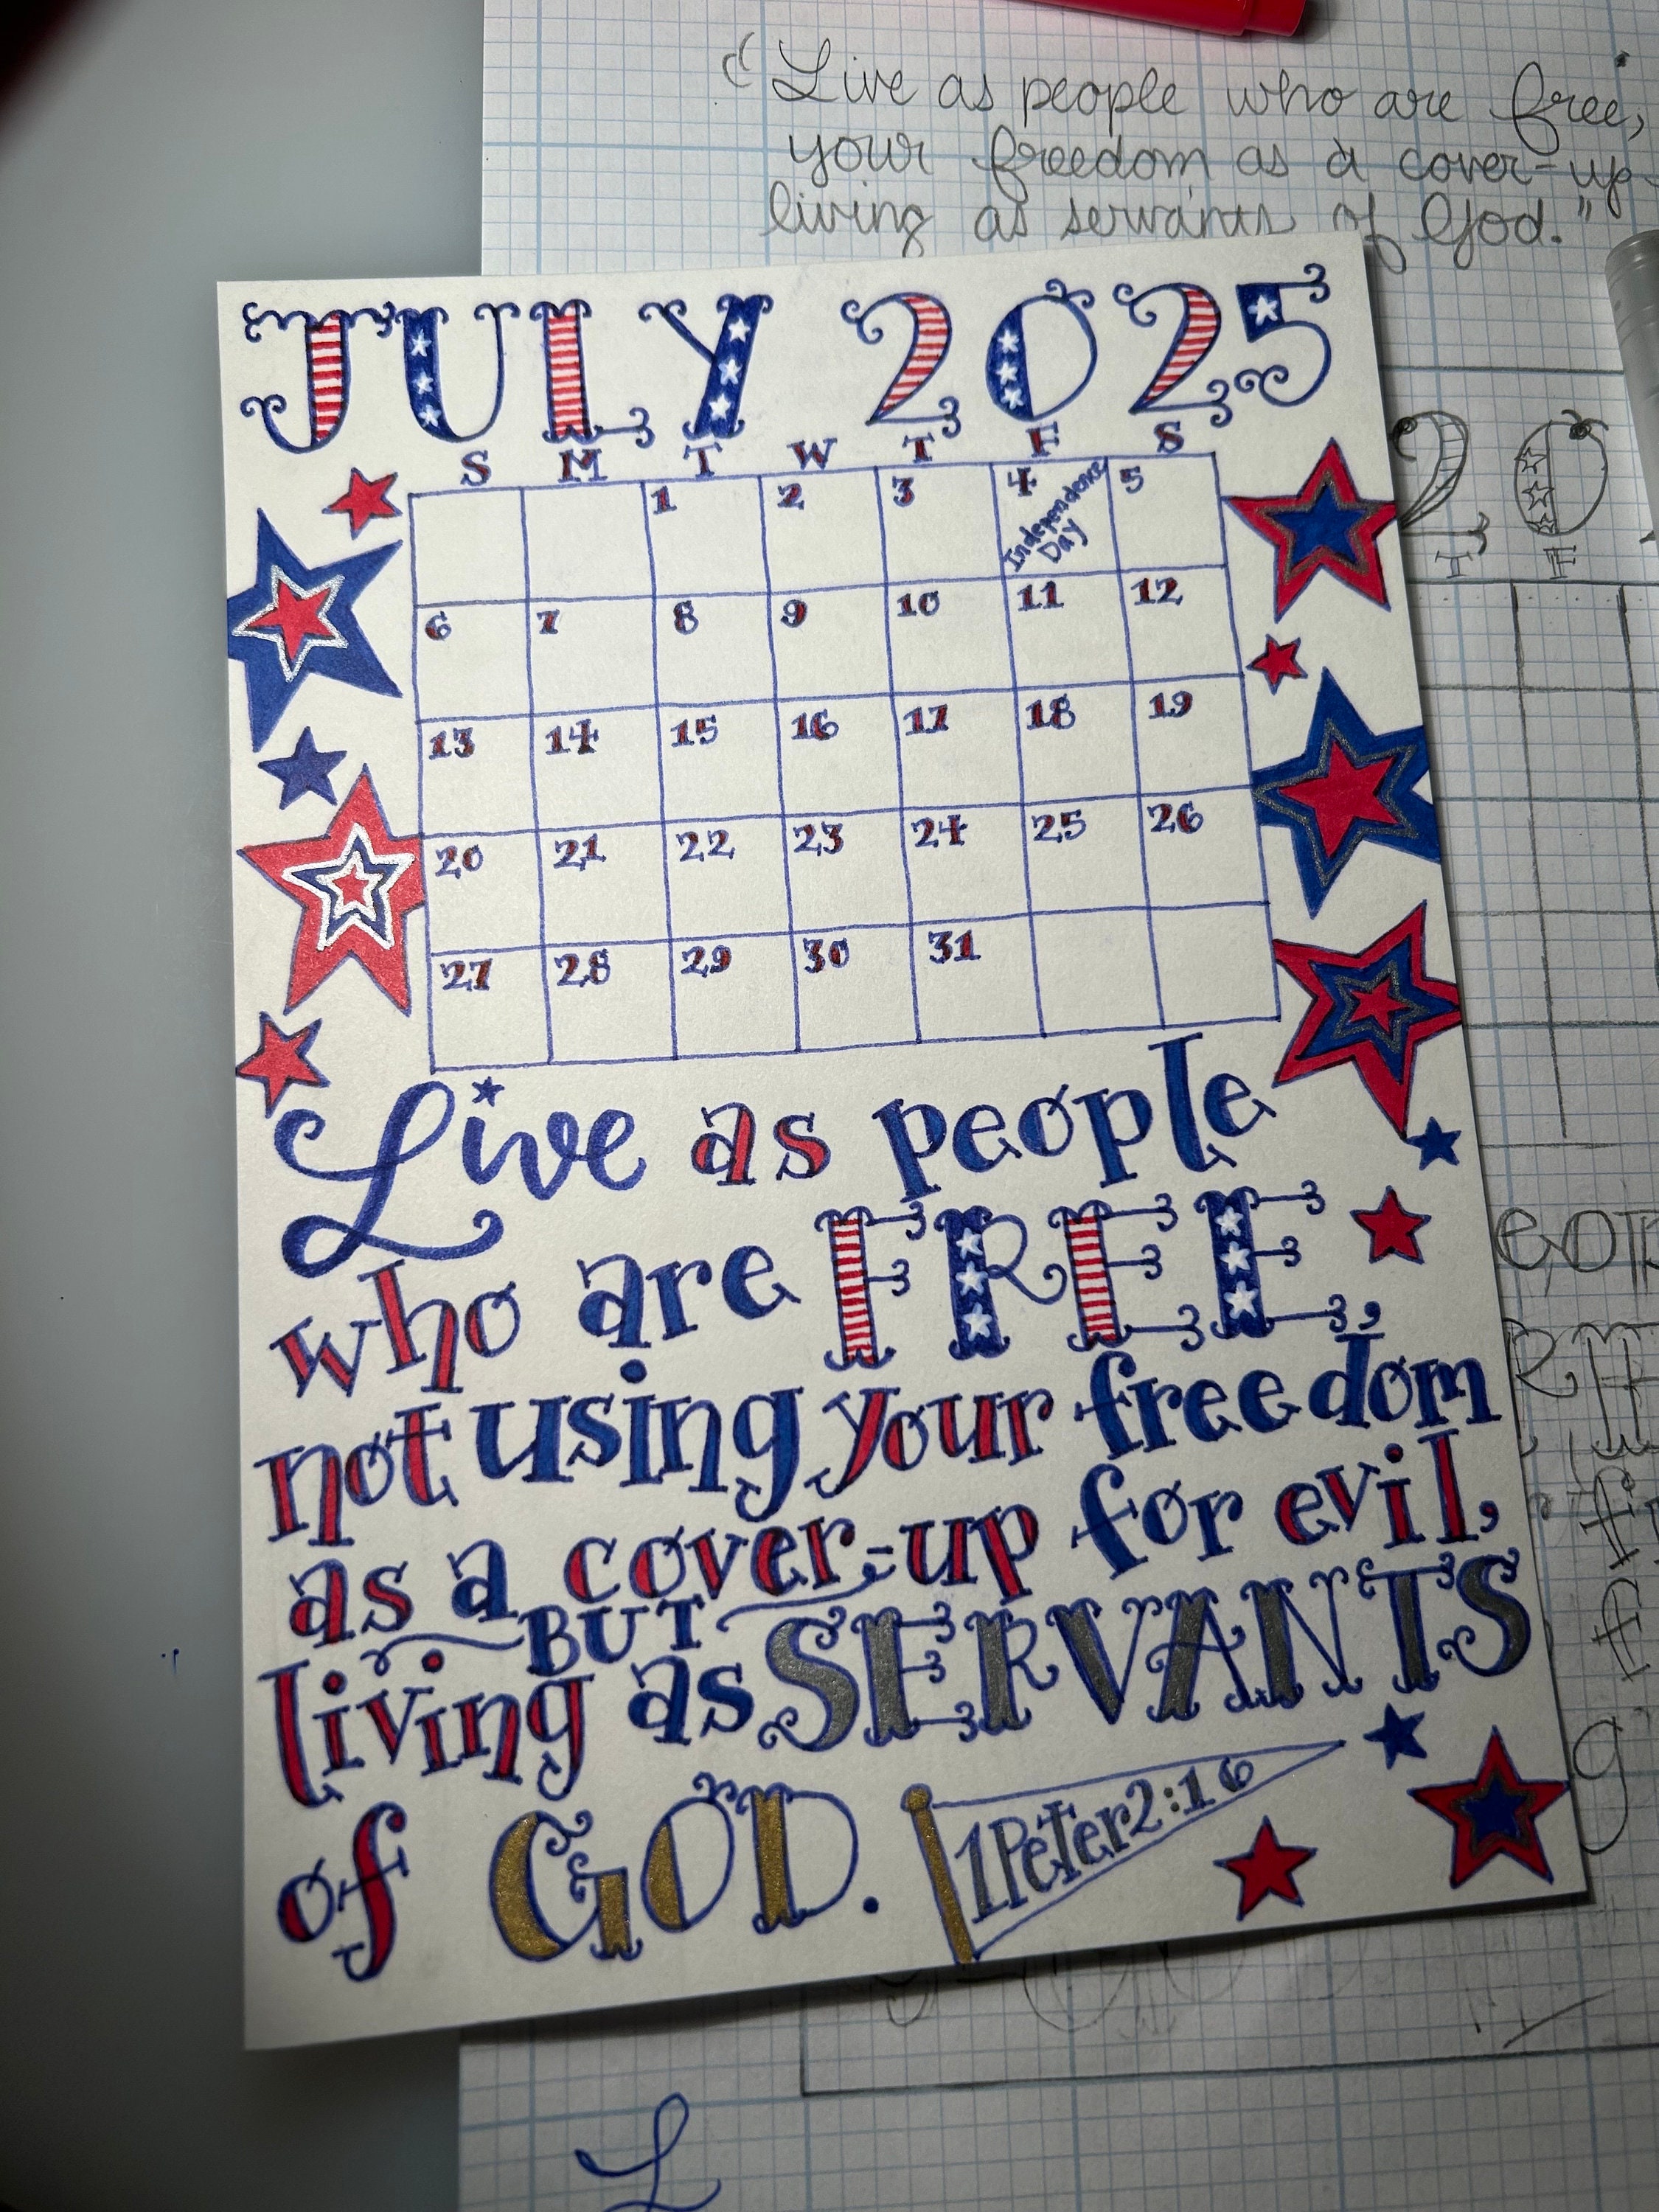 "Live as people who are free,
your freedom as a cover-up
living as servants of God."
JULY 2025
S M T W T F S
1 2 3 4 5
Independence
Day
6 7 8 9 10 11 12
13 14 15 16 17 18 19
20 21 22 23 24 25 26
27 28 29 30 31
Live as people
who are FREE,
not using your freedom
as a cover-up for evil,
BUT
living as SERVANTS
of GOD.
1 Peter 2:16
20
T F
L